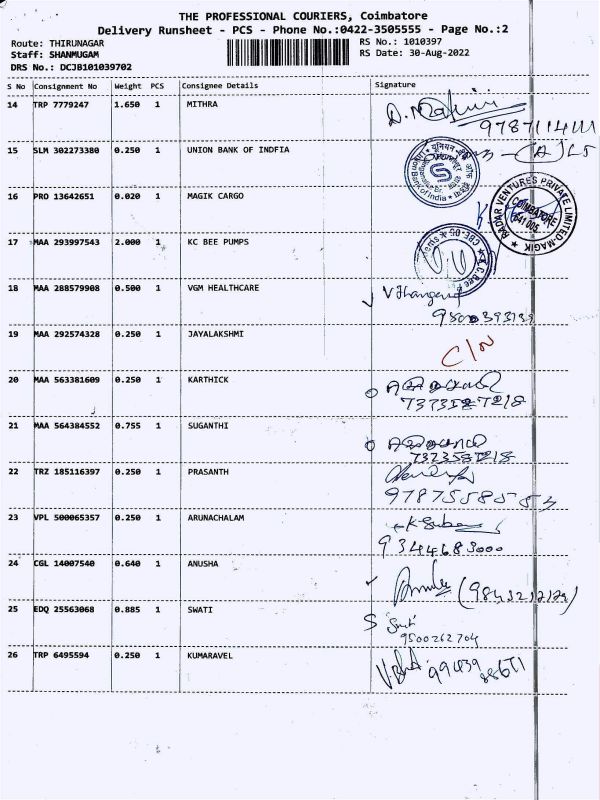 THE PROFESSIONAL COURIERS, Coimbatore
Delivery Runsheet - PCS - Phone No.:0422-3505555 - Page No.:2
Route: THIRUNAGAR
RS No.: 1010397
Staff: SHANMUGAM
RS Date: 30-Aug-2022
DRS No.: DCJB101039702
S No Consignment No Weight PCS Consignee Details Signature
14 TRP 7779247 1.650 1 MITHRA
9787114111
15 SLM 302273380 0.250 1 UNION BANK OF INDFIA
Union Bank of India
16 PRO 13642651 0.020 1 MAGIK CARGO
RADAR VENTURES PRIVATE LIMITED-MAGIK
COIMBATORE
641 005
17 MAA 293997543 2.000 1 KC BEE PUMPS
18 MAA 288579908 0.500 1 VGM HEALTHCARE
19 MAA 292574328 0.250 1 JAYALAKSHMI
C/N
20 MAA 563381609 0.250 1 KARTHICK
21 MAA 564384552 0.755 1 SUGANTHI
22 TRZ 185116397 0.250 1 PRASANTH
23 VPL 500065357 0.250 1 ARUNACHALAM
9344683000
24 CGL 14007540 0.640 1 ANUSHA
25 EDQ 25563068 0.885 1 SWATI
9500262704
26 TRP 6495594 0.250 1 KUMARAVEL